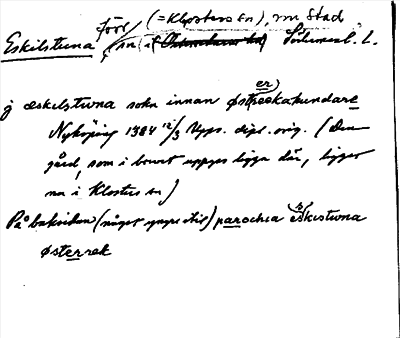 förr (= Klosters sn), nu stad
Eskilstuna sn i Österrekarne hd Södermanl. L.
j æskelstwna sokn innan østrekahundare (er)
Nyköping 1384 12/3 Upps. dipl. orig. (Den
gård, som i brevet uppges ligga där, ligger
nu i Klosters sn)
På baksidan (något yngre stil) parochia eskistwna
østerrek